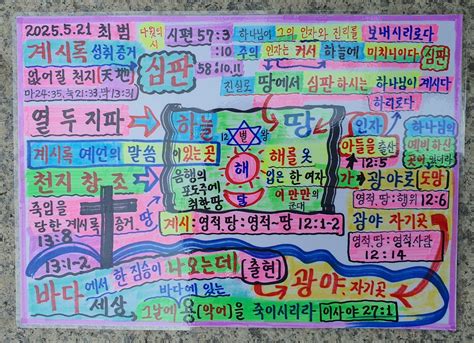 2025.5.21 최범
나윗의 시
시편 57:3
하나님에 그의 인자와 진리를 보내시리로다
계시록 성취 증거
:10 주의 인자는 커서 하늘에 미치니이다
심판
없어질 천지(天地)
심판
58:10,11
마24:35, 눅21:33, 막13:31
진실로 땅에서 심판하시는 하나님이 계시다
하리로다
열두지파
하늘
12 별 왕
땅
인자
하나님의
예비하신
곳이 있더라
계시록 예언의 말씀
이 있는 곳
해
해를 옷
아들을 출산
12:5
천지창조
음행의
포도주에
취한 땅
입은 한 여자
가 광야로 도망
죽임을
당한 계시록 증거
땅
달
이 만물의
군대
영적.땅:행위 12:6
13:8
계시:영적.땅:영적~땅 12:1-2
광야 자기곳
영적.땅:영적사람
12:14
13:1-2
바다에서 한 짐승이 나오는데 출현
광야. 자기곳
세상
바다에 있는
그날에 용(악어)을 죽이시리라 이사야 27:1